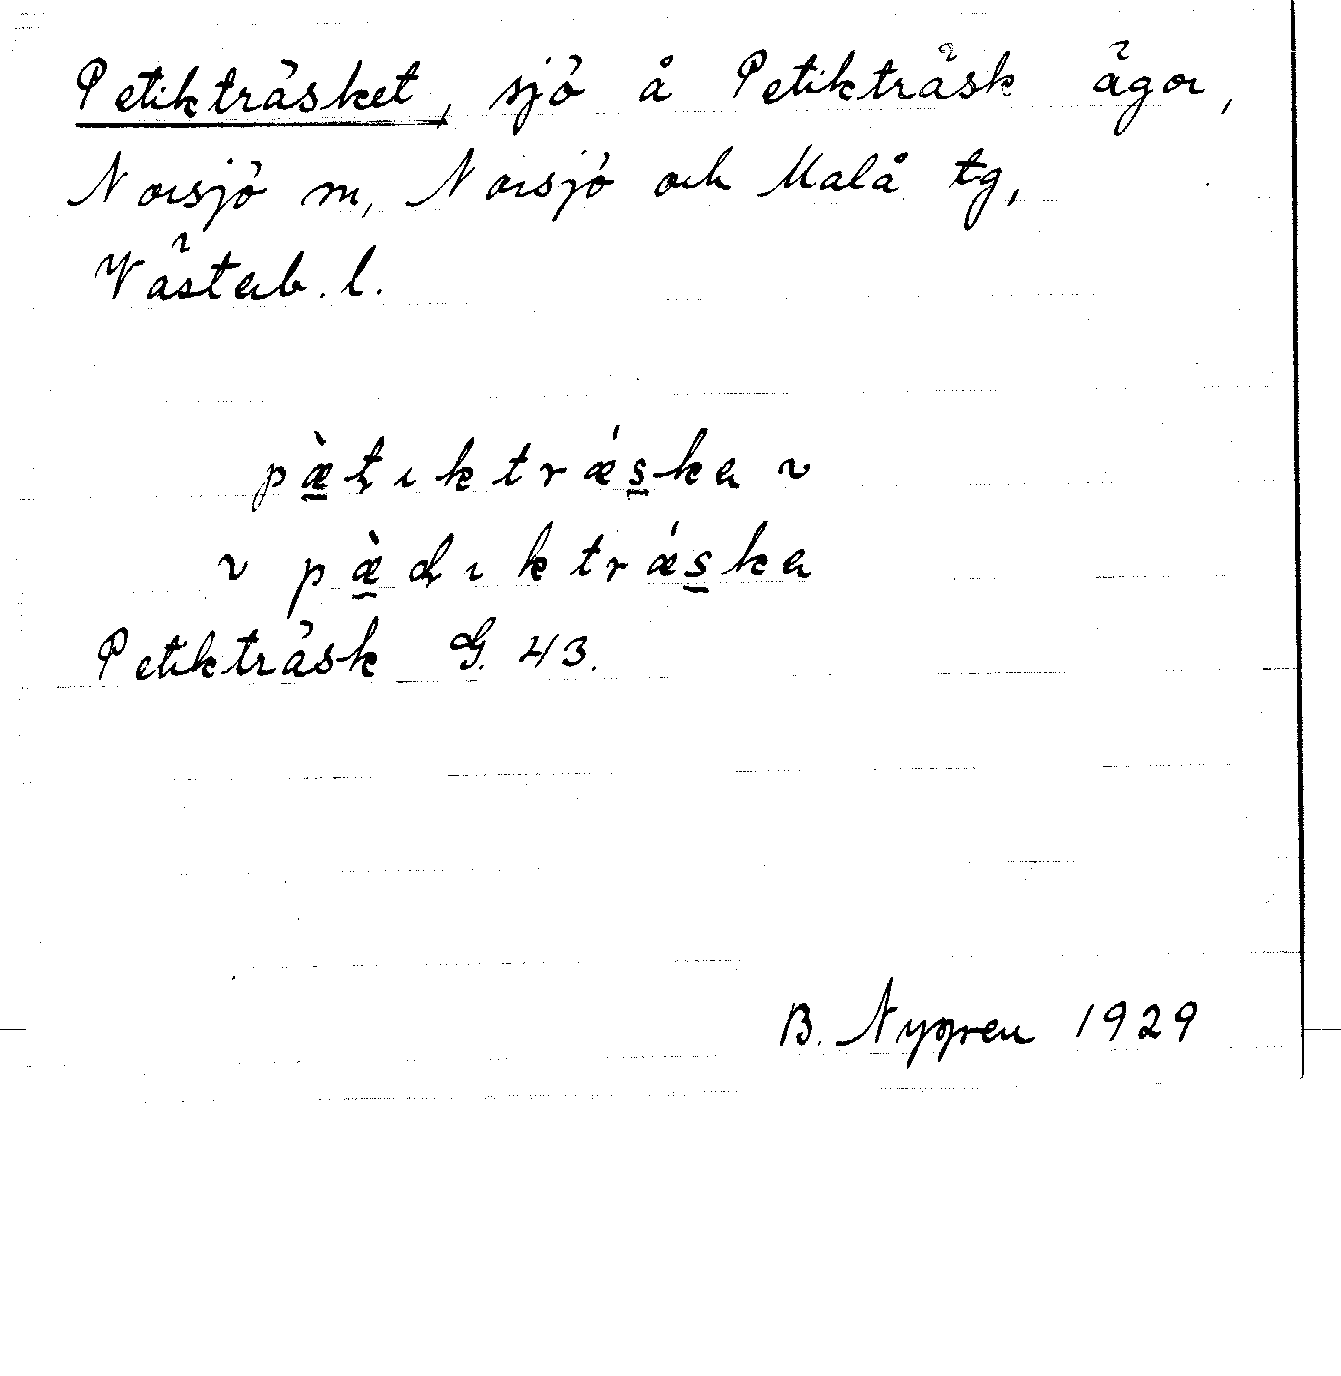 Petikträsket, sjö å Petikträsk ägor,
Norsjö sn, Norsjö och Malå tg,
Västerb. l.
pæ̀tıktrǽska ~
~ pæ̀dıktrǽska
Petikträsk G. 43.
B. Nygren 1929